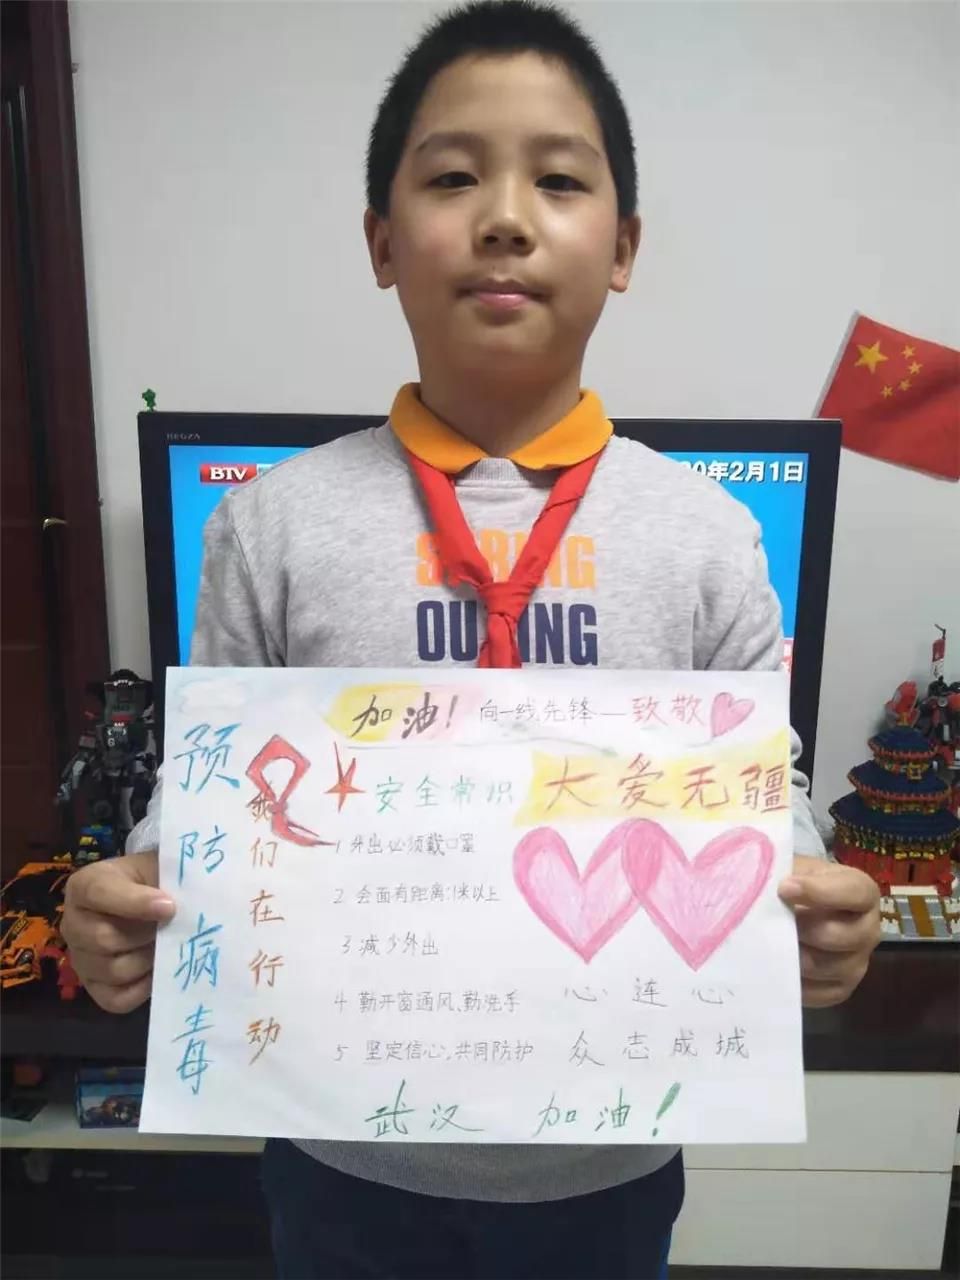 REGZA
BTV
20年2月1日
OU ING
加油！ 向一线先锋—致敬
预防病毒
我们在行动
安全常识
大爱无疆
1 外出必须戴口罩
2 会面有距离:1米以上
3 减少外出
4 勤开窗通风、勤洗手
5 坚定信心,共同防护
心连心
众志成城
武汉 加油！